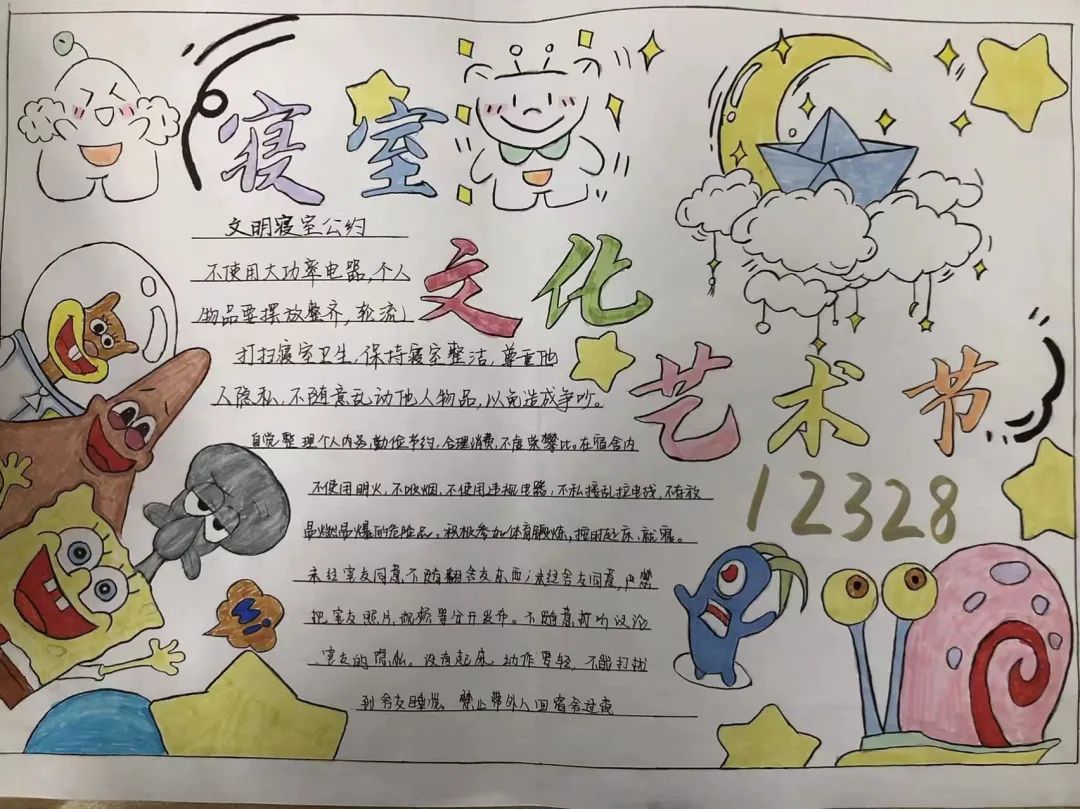 寝室
文化
艺术节
12328
文明寝室公约
不使用大功率电器,个人
物品要摆放整齐,轮流
打扫寝室卫生,保持寝室整洁,尊重他
人隐私,不随意乱动他人物品,以免造成争吵。
自觉整理个人内务勤俭节约,合理消费,不虚荣攀比。在宿舍内
不使用明火,不吸烟,不使用违规电器,不私接乱拉电线,不存放
易燃易爆的危险品,积极参加体育锻炼,按时起床、就寝。
未经室友同意,不随翻舍友东西;未经舍友同意,严禁
把室友照片,视频等公开发布。不随意打听议论
室友的隐私。没有起床,动作要轻,不能打扰
到舍友睡觉,禁止带外人回宿舍过夜